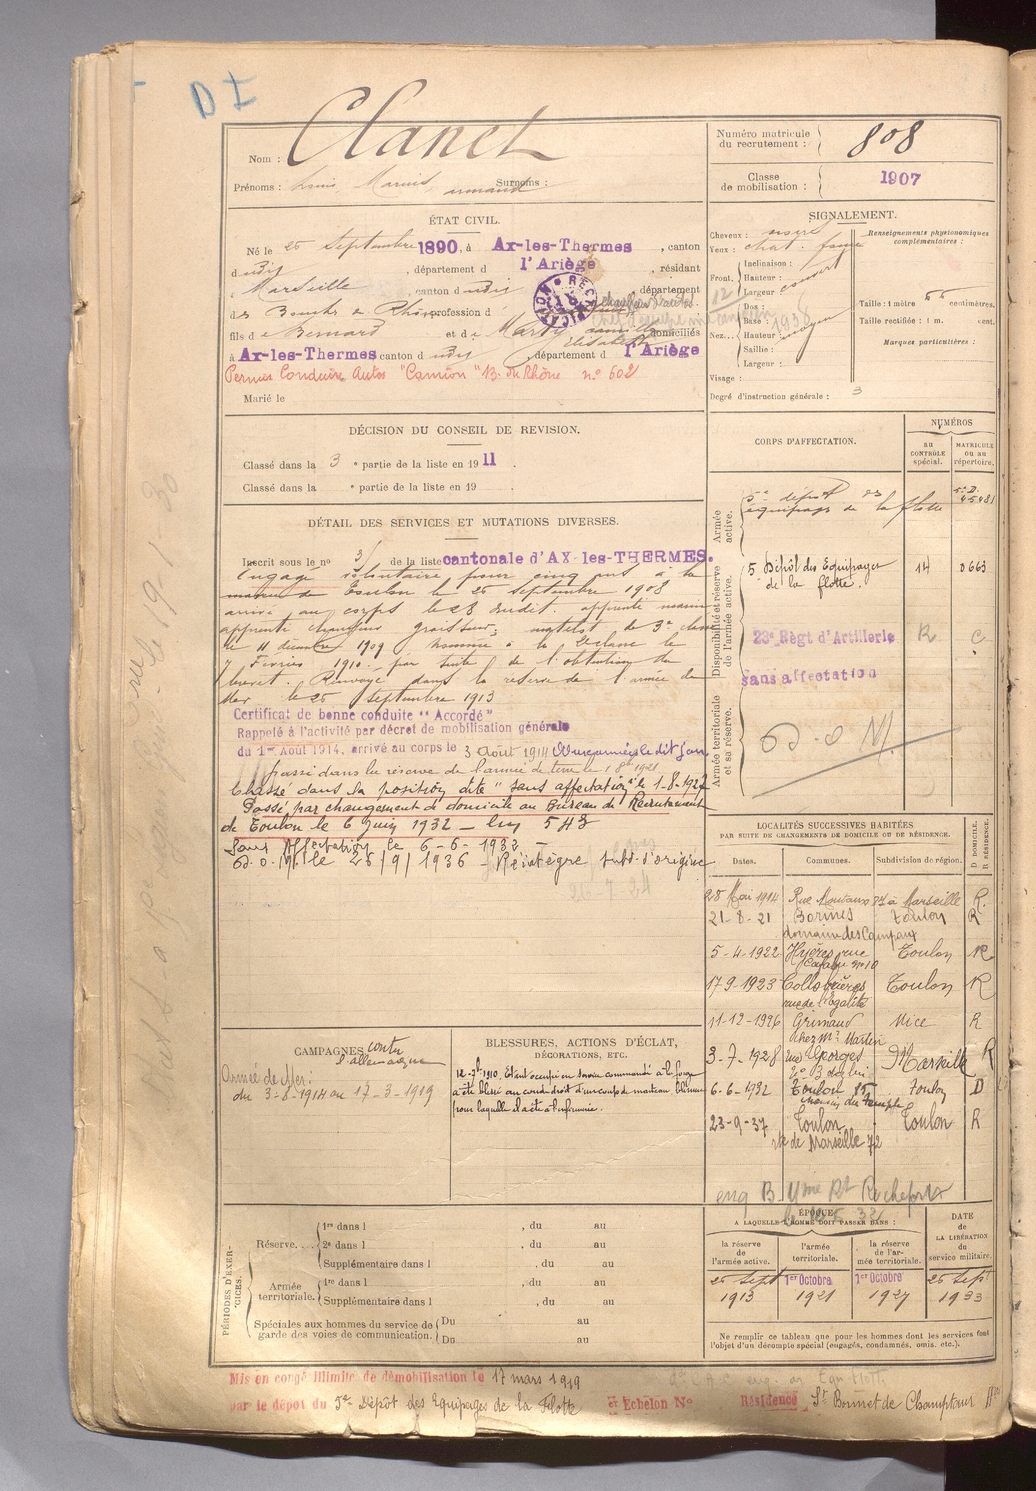 D I
Nom : Clanet
Prénoms : Louis Marius armand Surnoms :
Numéro matricule du recrutement : 808
Classe de mobilisation : 1907
ÉTAT CIVIL.
Né le 25 Septembre 1890, à Ax-les-Thermes, canton
dudit, département d l'Ariège, résidant
à Marseille, canton dudit, département
des Bouches du Rhône, profession d
fils de Bernard et de Marty Camille Elisabeth domiciliés
à Ax-les-Thermes canton dudit, département d l'Ariège
Permis Conduire Autos "Camion" B. du Rhône no 602
Marié le
SIGNALEMENT.
Cheveux :
Yeux : chat. foncé
Front.
Inclinaison :
Hauteur : court
Largeur :
Nez...
Dos :
Base :
Hauteur : moyen
Saillie :
Largeur :
Visage :
Renseignements physionomiques complémentaires :
Taille : 1 mètre 66 centimètres.
Taille rectifiée : 1 m. cent.
Marques particulières :
Degré d'instruction générale : 3
DÉCISION DU CONSEIL DE REVISION.
Classé dans la 3e partie de la liste en 1911.
Classé dans la e partie de la liste en 19 .
CORPS D'AFFECTATION.
NUMÉROS
AU CONTRÔLE spécial.
MATRICULE ou au répertoire.
Armée active.
5e dépôt des équipages de la flotte 5e D. 45481
Disponibilité et réserve de l'armée active.
5 Dépôt des Equipages de la flotte. 14 0663
23e Régt d'Artillerie R C
sans affectation
Armée territoriale et sa réserve.
DÉTAIL DES SERVICES ET MUTATIONS DIVERSES.
Inscrit sous le no 31 de la liste cantonale d'AX-les-THERMES.
Engagé volontaire pour cinq ans à la
mairie de Toulon le 25 septembre 1908
arrivé au corps le 28 dudit, apprenti marin
apprenti chauffeur graisseur; matelot de 3e classe
le 11 décembre 1909 nommé à la 2e classe le
7 Février 1910. par suite de l'obtention du
brevet. Renvoyé dans la réserve de l'armée de
Mer le 25 septembre 1913
Certificat de bonne conduite "Accordé"
Rappelé à l'activité par décret de mobilisation générale
du 1er Août 1914, arrivé au corps le 3 Août 1914 Aux armées le dit jour
passé dans la réserve de l'armée de terre le 1 8bre 1921
Classé dans la position dite "sans affectation" le 1-8-1927
Passé par changement de domicile au Bureau de Recrutement
de Toulon le 6 Juin 1932 -
Sans Affectation le 6-6-1932
le 25/9/1936 - Réintègre subd. d'origine
26-7-24
LOCALITÉS SUCCESSIVES HABITÉES
PAR SUITE DE CHANGEMENTS DE DOMICILE OU DE RÉSIDENCE.
Dates. Communes. Subdivision de région. D DOMICILE. R RÉSIDENCE.
28 Mai 1914 Rue à Marseille R.
21-8-21 Bormes Toulon R
domaine des Campaux
5-4-1922 Hyères rue Toulon R
17-9-1923 Collobrières Toulon R
rue de l'égalité
11-12-1926 Grimaud Nice R
chez Mr Martin
3-7-1928 Marseille R
6-6-1932 Toulon 85 Toulon D
chemin du Temple
23-9-37 Toulon Toulon R
rte de Marseille 72
CAMPAGNES contre l'allemagne
Armée de Mer:
du 3-8-1914 au 17-3-1919
BLESSURES, ACTIONS D'ÉCLAT,
DÉCORATIONS, ETC.
12-7-1910. Etant occupé en service commandé à la forge
a été blessé au coude droit d'un coup de marteau
pour laquelle il a été à l'infirmerie.
PÉRIODES D'EXERCICES.
Réserve....
1re dans l , du au
2e dans l , du au
Supplémentaire dans l , du au
Armée territoriale.
1re dans l , du au
Supplémentaire dans l , du au
Spéciales aux hommes du service de garde des voies de communication.
Du au
Du au
ÉPOQUE
A LAQUELLE L'HOMME DOIT PASSER DANS :
la réserve de l'armée active.
l'armée territoriale.
la réserve de l'armée territoriale.
DATE de LA LIBÉRATION du service militaire.
25 Sept 1913
1er Octobre 1921
1er Octobre 1927
25 Sept 1933
Ne remplir ce tableau que pour les hommes dont les services font
l'objet d'un décompte spécial (engagés, condamnés, omis, etc.).
Mis en congé illimité de démobilisation le 17 mars 1919
par le dépot du 5e Dépôt des Equipages de la Flotte et Echelon No Résidence St Bonnet de Champtour